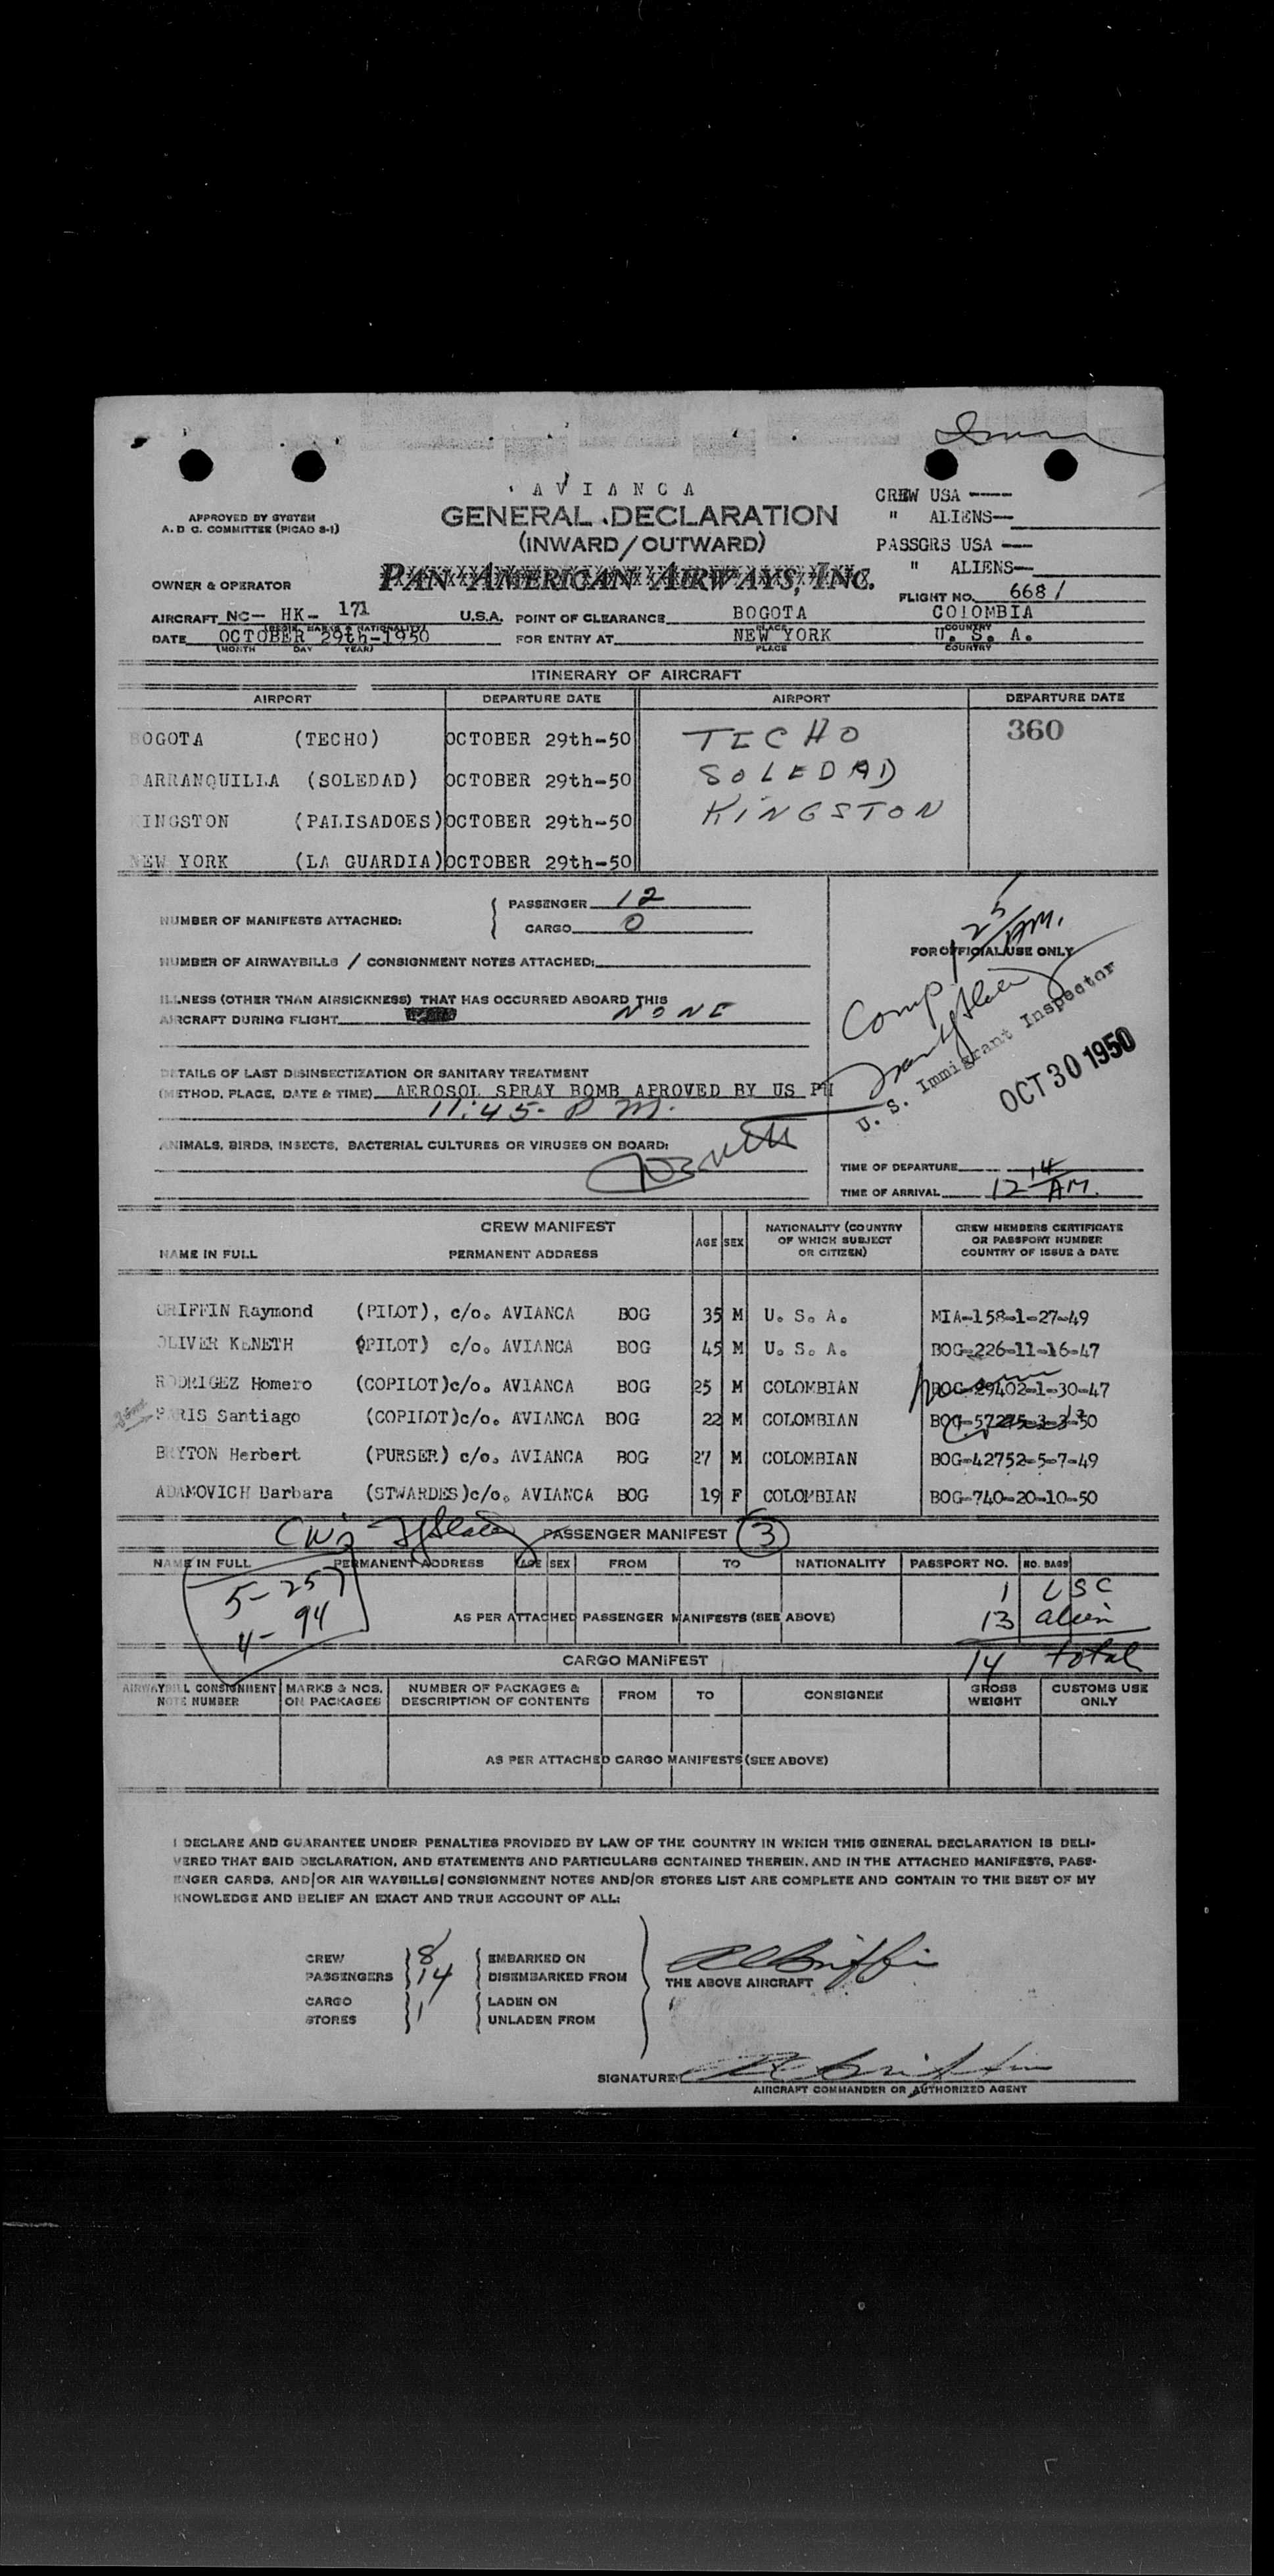 AVIANCA
APPROVED BY SYSTEM
A. D C. COMMITTEE (PICAO S-1)
GENERAL DECLARATION
(INWARD/OUTWARD)
PAN AMERICAN AIRWAYS, INC.
CREW USA ----
" ALIENS--
PASSGRS USA ---
" ALIENS--
OWNER & OPERATOR
FLIGHT NO. 668/
AIRCRAFT NC- HK- 171 U.S.A. POINT OF CLEARANCE BOGOTA COLOMBIA
PLACE COUNTRY
DATE OCTOBER 29th-1950 FOR ENTRY AT NEW YORK U. S. A.
(MONTH DAY YEAR) PLACE COUNTRY
ITINERARY OF AIRCRAFT
AIRPORT DEPARTURE DATE AIRPORT DEPARTURE DATE
BOGOTA (TECHO) OCTOBER 29th-50 TECHO 360
BARRANQUILLA (SOLEDAD) OCTOBER 29th-50 SOLEDAD
KINGSTON (PALISADOES) OCTOBER 29th-50 KINGSTON
NEW YORK (LA GUARDIA) OCTOBER 29th-50
NUMBER OF MANIFESTS ATTACHED: PASSENGER 12
CARGO 0
FOR OFFICIAL USE ONLY
NUMBER OF AIRWAYBILLS / CONSIGNMENT NOTES ATTACHED:
ILLNESS (OTHER THAN AIRSICKNESS) THAT HAS OCCURRED ABOARD THIS
AIRCRAFT DURING FLIGHT NONE
Comp 1 25/AM.
U. S. Immigrant Inspector
OCT 30 1950
DETAILS OF LAST DISINSECTIZATION OR SANITARY TREATMENT
(METHOD, PLACE, DATE & TIME) AEROSOL SPRAY BOMB APROVED BY US PH
11:45- P M.
ANIMALS, BIRDS, INSECTS, BACTERIAL CULTURES OR VIRUSES ON BOARD:
TIME OF DEPARTURE
TIME OF ARRIVAL 12 14/AM.
CREW MANIFEST
NAME IN FULL PERMANENT ADDRESS AGE SEX NATIONALITY (COUNTRY OF WHICH SUBJECT OR CITIZEN) CREW MEMBERS CERTIFICATE OR PASSPORT NUMBER COUNTRY OF ISSUE & DATE
GRIFFIN Raymond (PILOT), c/o. AVIANCA BOG 35 M U. S. A. MIA-158-1-27-49
OLIVER KENETH (PILOT) c/o. AVIANCA BOG 45 M U. S. A. BOG-226-11-16-47
RODRIGEZ Homero (COPILOT)c/o. AVIANCA BOG 25 M COLOMBIAN BOG-29402-1-30-47
PARIS Santiago (COPILOT)c/o. AVIANCA BOG 22 M COLOMBIAN BOG-57275-3-3-50
BRYTON Herbert (PURSER) c/o. AVIANCA BOG 27 M COLOMBIAN BOG-42752-5-7-49
ADAMOVICH Barbara (STWARDES)c/o. AVIANCA BOG 19 F COLOMBIAN BOG-740-20-10-50
PASSENGER MANIFEST 3
NAME IN FULL PERMANENT ADDRESS AGE SEX FROM TO NATIONALITY PASSPORT NO. NO. BAGS
5-257
4-94
1 USC
AS PER ATTACHED PASSENGER MANIFESTS (SEE ABOVE) 13 alien
CARGO MANIFEST 14 total
AIRWAYBILL CONSIGNMENT NOTE NUMBER MARKS & NOS. ON PACKAGES NUMBER OF PACKAGES & DESCRIPTION OF CONTENTS FROM TO CONSIGNEE GROSS WEIGHT CUSTOMS USE ONLY
AS PER ATTACHED CARGO MANIFESTS (SEE ABOVE)
I DECLARE AND GUARANTEE UNDER PENALTIES PROVIDED BY LAW OF THE COUNTRY IN WHICH THIS GENERAL DECLARATION IS DELI-
VERED THAT SAID DECLARATION, AND STATEMENTS AND PARTICULARS CONTAINED THEREIN, AND IN THE ATTACHED MANIFESTS, PASS-
ENGER CARDS, AND/OR AIR WAYBILLS/CONSIGNMENT NOTES AND/OR STORES LIST ARE COMPLETE AND CONTAIN TO THE BEST OF MY
KNOWLEDGE AND BELIEF AN EXACT AND TRUE ACCOUNT OF ALL:
CREW 8 EMBARKED ON
PASSENGERS 14 DISEMBARKED FROM THE ABOVE AIRCRAFT
CARGO LADEN ON
STORES 1 UNLADEN FROM
SIGNATURE:
AIRCRAFT COMMANDER OR AUTHORIZED AGENT